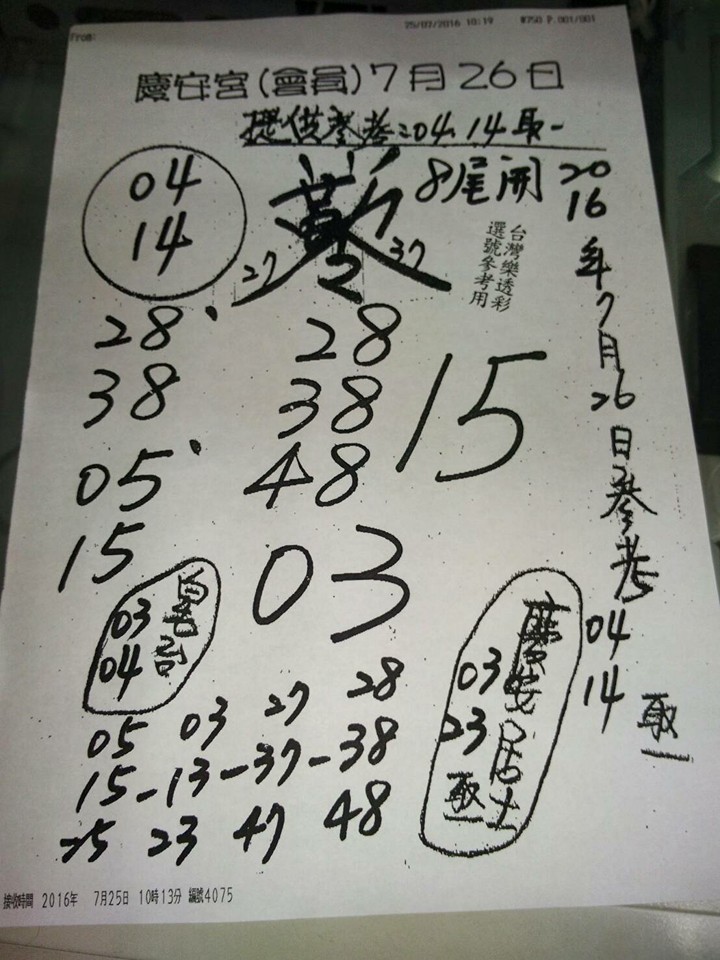 From:
25/07/2016 10:19 #750 P.001/001
慶安宮(會員)7月26日
提供參考:04.14取一
04
14
27
37
8尾開
台灣樂透彩
選號參考用
2016年7月26日參考
04
14
取一
28
38
05
15
28
38
48
15
03
03
04
慶安居士
03
23
取一
05 03 27 28
15-13-37-38
25 23 47 48
接收時間 2016年 7月25日 10時13分 編號4075